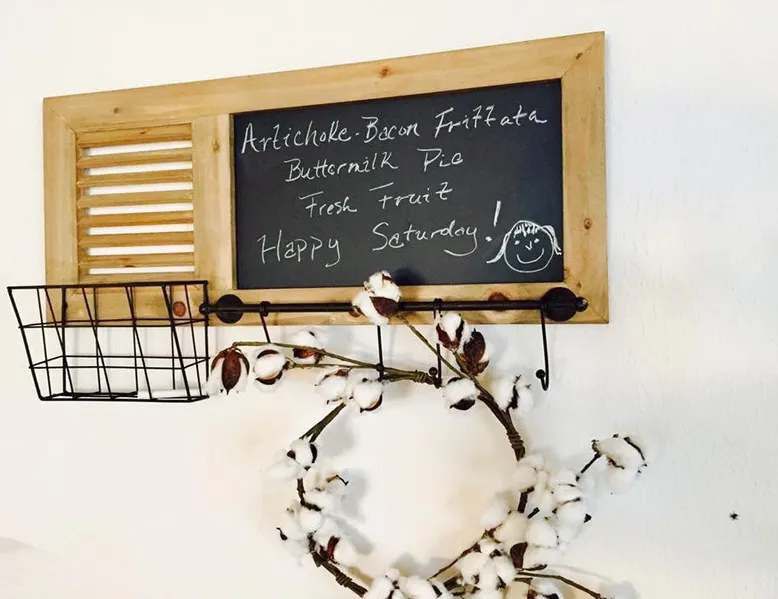 Artichoke-Bacon Frittata
Buttermilk Pie
Fresh Fruit
Happy Saturday!